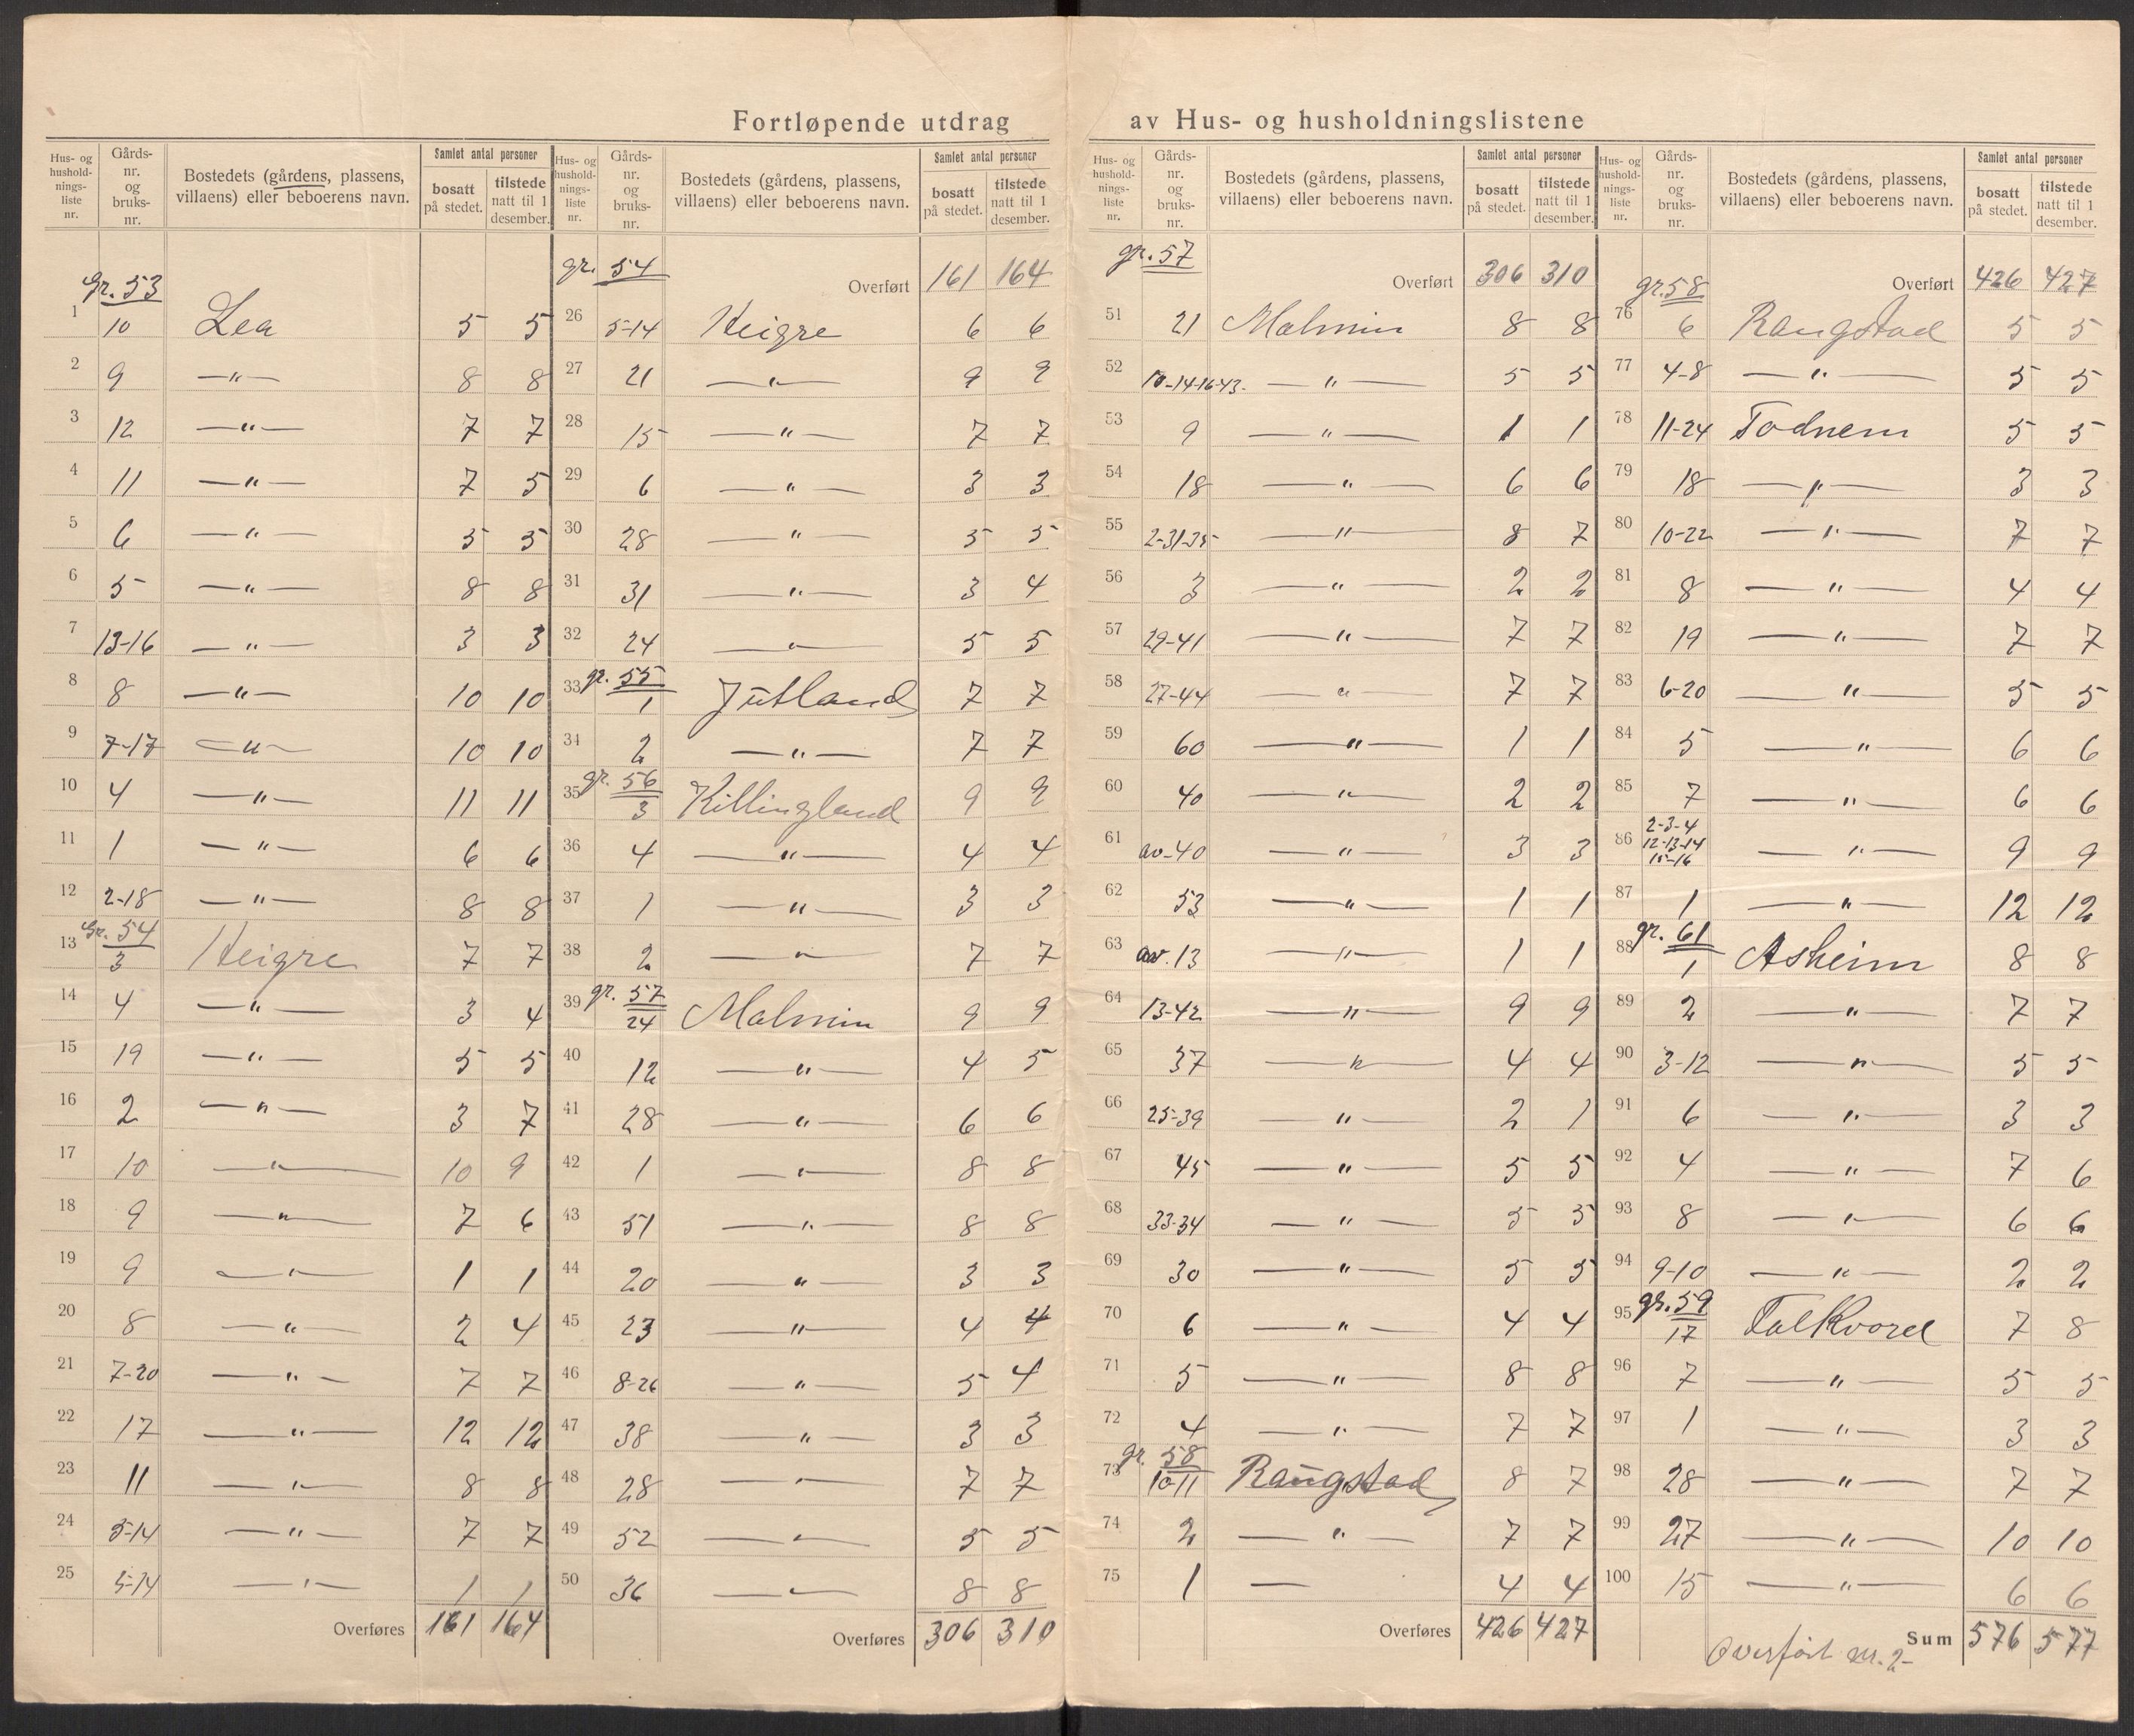 Fortløpende utdrag av Hus- og husholdningslistene
Hus- og hushold-nings-liste nr. | Gårds-nr. og bruks-nr. | Bostedets (gårdens, plassens, villaens) eller beboerens navn. | Samlet antal personer bosatt på stedet. | tilstede natt til 1 desember.
Gr. 53
1 10 Lea 5 5
2 9 —"— 8 8
3 12 —"— 7 7
4 11 —"— 7 5
5 6 —"— 5 5
6 5 —"— 8 8
7 13-16 —"— 3 3
8 8 —"— 10 10
9 7-17 —"— 10 10
10 4 —"— 11 11
11 1 —"— 6 6
12 2-18 —"— 8 8
Gr. 54
13 3 Heigre 7 7
14 4 —"— 3 4
15 19 —"— 5 5
16 2 —"— 3 7
17 10 —"— 10 9
18 9 —"— 7 6
19 9 —"— 1 1
20 8 —"— 2 4
21 7-20 —"— 7 7
22 17 —"— 12 12
23 11 —"— 8 8
24 5-14 —"— 7 7
25 5-14 —"— 1 1
Overføres 161 164
Hus- og hushold-nings-liste nr. | Gårds-nr. og bruks-nr. | Bostedets (gårdens, plassens, villaens) eller beboerens navn. | Samlet antal personer bosatt på stedet. | tilstede natt til 1 desember.
gr. 54 Overført 161 164
26 5-14 Heigre 6 6
27 21 —"— 9 9
28 15 —"— 7 7
29 6 —"— 3 3
30 28 —"— 5 5
31 31 —"— 3 4
32 24 —"— 5 5
gr. 55
33 1 Jutland 7 7
34 2 —"— 7 7
gr. 56
35 3 Killingland 9 9
36 4 —"— 4 4
37 1 —"— 3 3
38 2 —"— 7 7
gr. 57
39 24 Malmin 9 9
40 12 —"— 4 5
41 28 —"— 6 6
42 1 —"— 8 8
43 51 —"— 8 8
44 20 —"— 3 3
45 23 —"— 4 4
46 8-26 —"— 5 4
47 38 —"— 3 3
48 28 —"— 7 7
49 52 —"— 5 5
50 36 —"— 8 8
Overføres 306 310
Hus- og hushold-nings-liste nr. | Gårds-nr. og bruks-nr. | Bostedets (gårdens, plassens, villaens) eller beboerens navn. | Samlet antal personer bosatt på stedet. | tilstede natt til 1 desember.
gr. 57 Overført 306 310
51 21 Malmin 8 8
52 10-14-16-43- —"— 5 5
53 9 —"— 1 1
54 18 —"— 6 6
55 2-31-35 —"— 8 7
56 3 —"— 2 2
57 29-41 —"— 7 7
58 27-44 —"— 7 7
59 60 —"— 1 1
60 40 —"— 2 2
61 av-40 —"— 3 3
62 53 —"— 1 1
63 av.13 —"— 1 1
64 13-42 —"— 9 9
65 37 —"— 4 4
66 25-39 —"— 2 1
67 45 —"— 5 5
68 33-34 —"— 5 5
69 30 —"— 5 5
70 6 —"— 4 4
71 5 —"— 8 8
72 4 —"— 7 7
gr. 58
73 10-11 Raugstad 8 7
74 2 —"— 7 7
75 1 — 4 4
Overføres 426 427
Hus- og hushold-nings-liste nr. | Gårds-nr. og bruks-nr. | Bostedets (gårdens, plassens, villaens) eller beboerens navn. | Samlet antal personer bosatt på stedet. | tilstede natt til 1 desember.
gr. 58 Overført 426 427
76 6 Raugstad 5 5
77 4-8 —"— 5 5
78 11-24 Todnem 5 5
79 18 —"— 3 3
80 10-22 —"— 7 7
81 8 —"— 4 4
82 19 —"— 7 7
83 6-20 —"— 5 5
84 5 —"— 6 6
85 7 —"— 6 6
86 2-3-4 12-13-14 15-16 —"— 9 9
87 1 —"— 12 12
gr. 61
88 1 Asheim 8 8
89 2 —"— 7 7
90 3-12 —"— 5 5
91 6 —"— 3 3
92 4 —"— 7 6
93 8 —"— 6 6
94 9-10 —"— 2 2
gr. 59
95 17 Folkvord 7 8
96 7 —"— 5 5
97 1 —"— 3 3
98 28 —"— 7 7
99 27 —"— 10 10
100 15 —"— 6 6
Sum 576 577
Overført nr. 2-